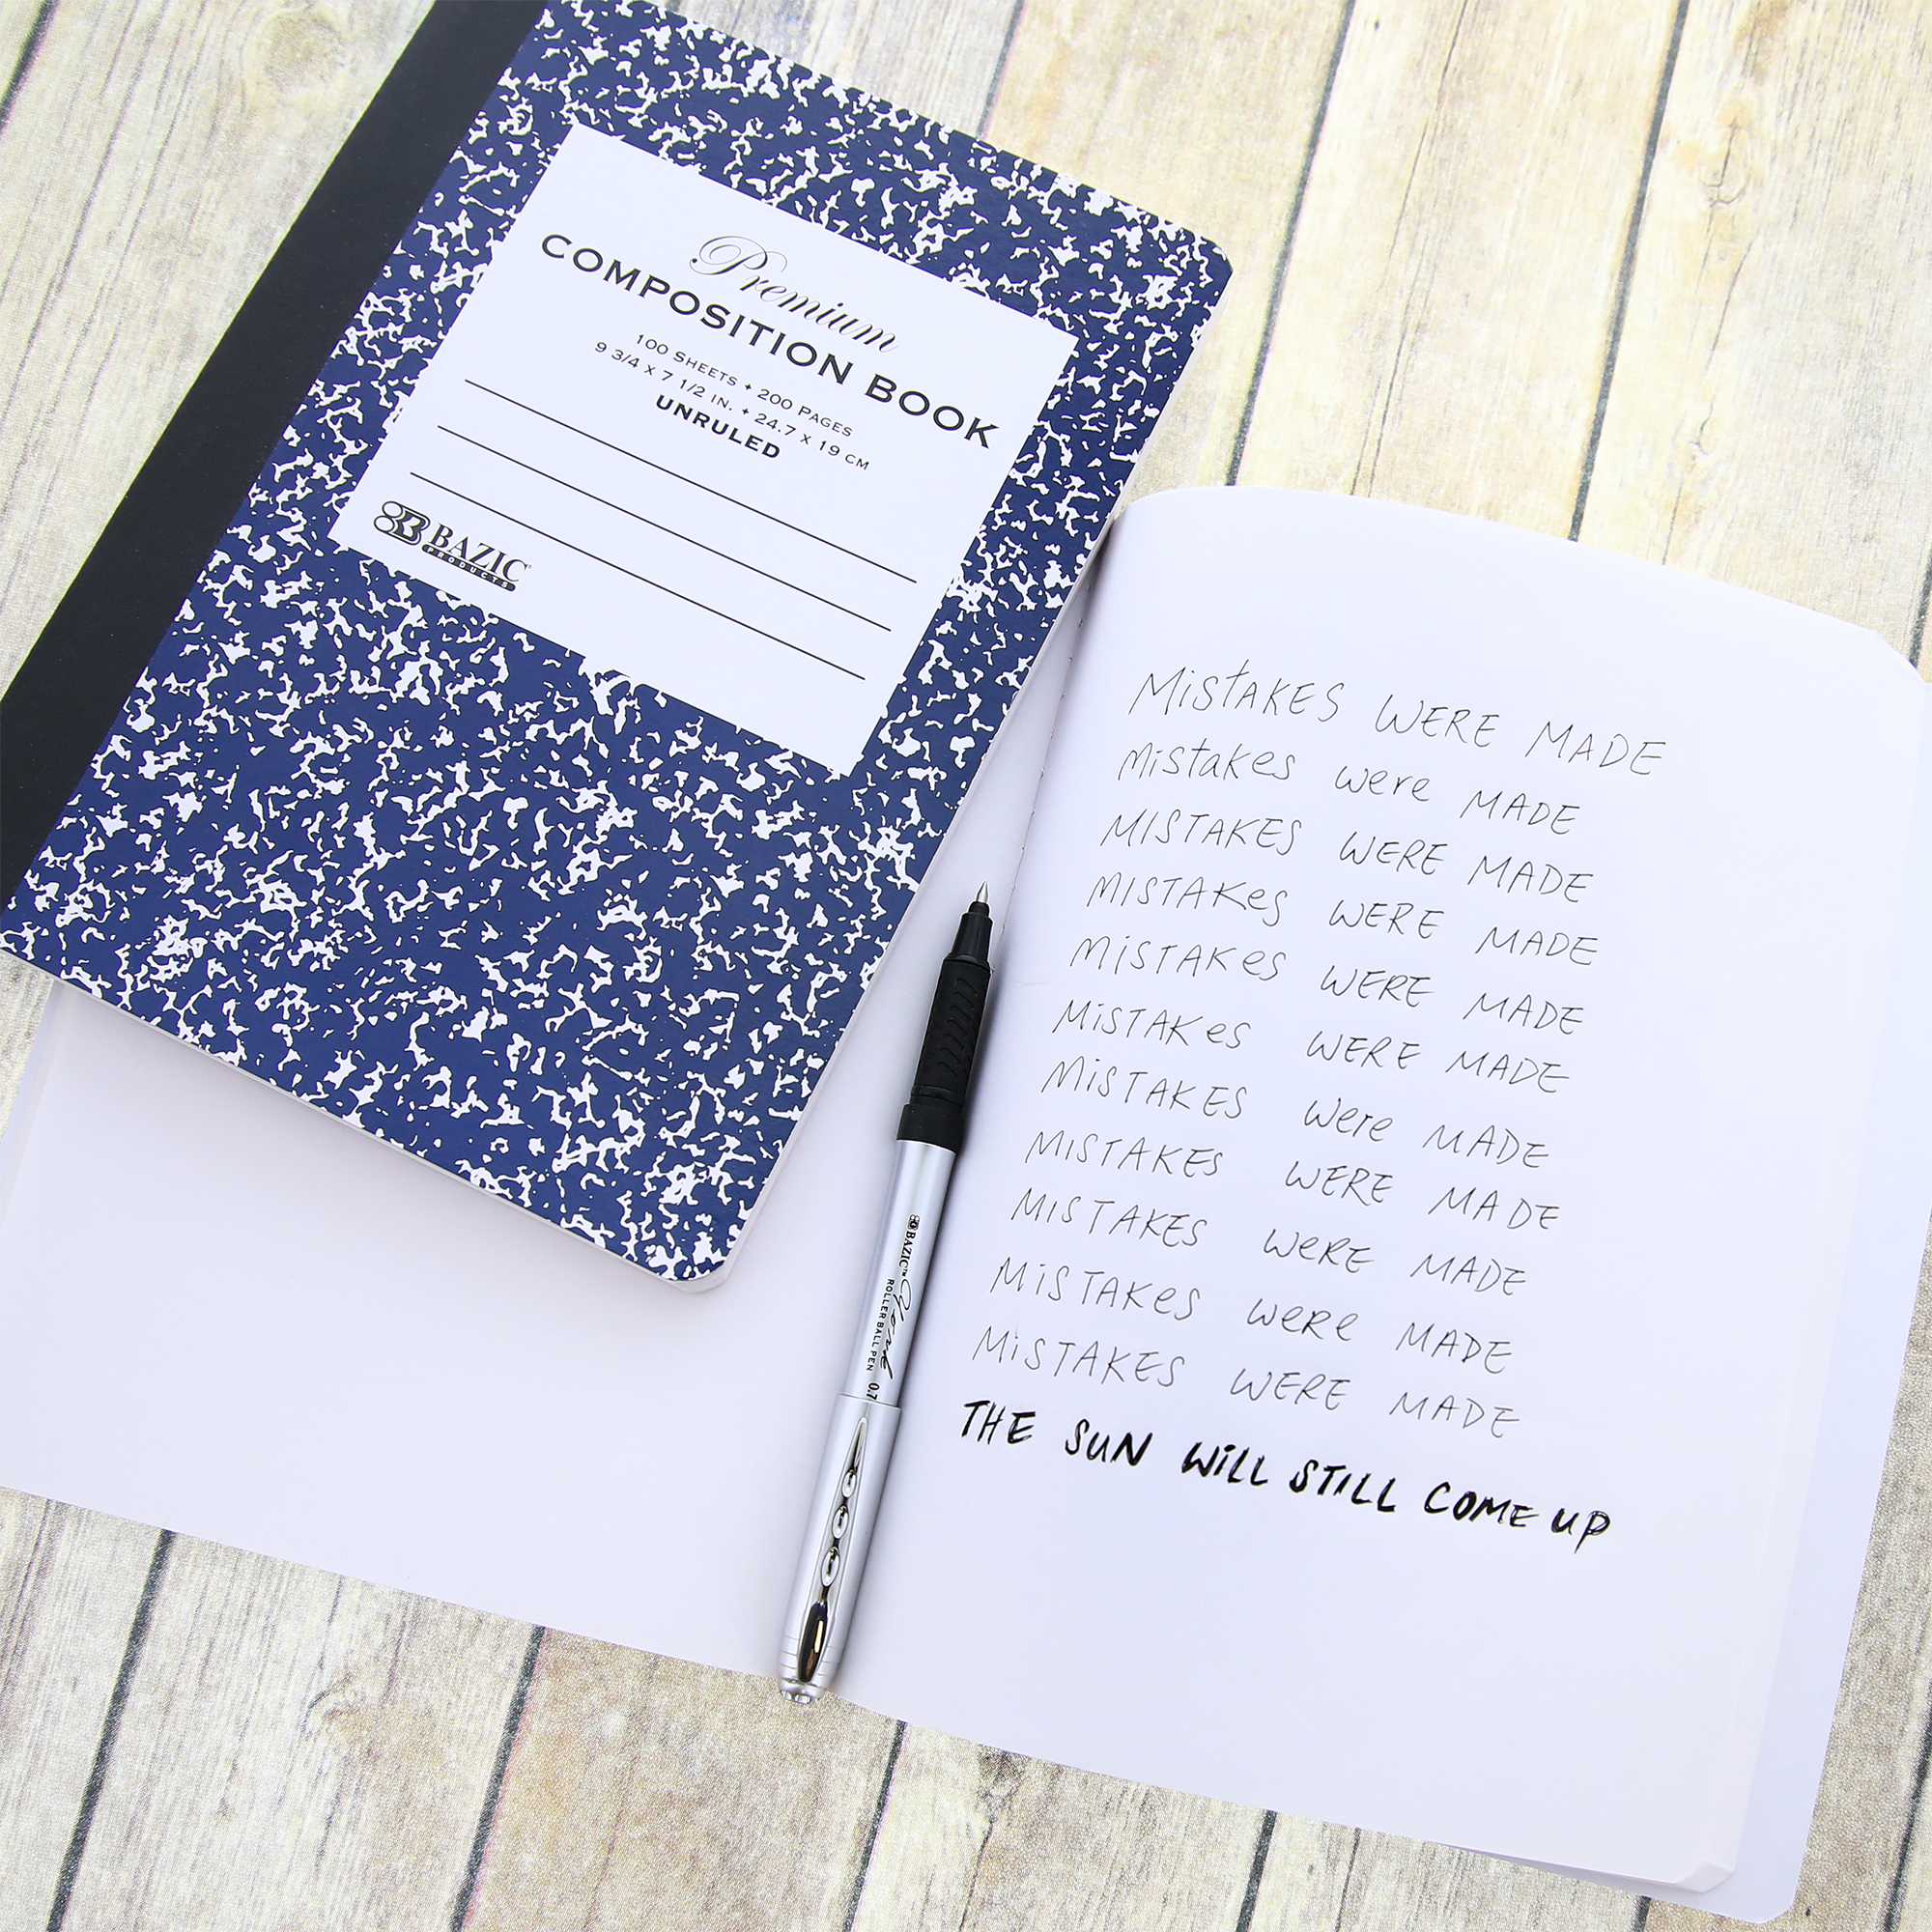 Premium
COMPOSITION BOOK
100 SHEETS • 200 PAGES
9 3/4 X 7 1/2 IN. • 24.7 X 19 CM
UNRULED
BAZIC
PRODUCTS
MiStAKES WERE MADE
Mistakes were MADE
MISTAKES WERE MADE
MISTAKes WERE MADE
MiSTAKes WERE MADE
MiSTAKes WERE MADE
MiSTAKES were MADE
MISTAKES WERE MADE
MiSTAKES WeRE MADE
MiSTAKes weRe MADE
MiSTAKES WERE MADE
THE SUN WiLL STILL COME UP
BAZIC™
ROLLER BALL PEN 0.7